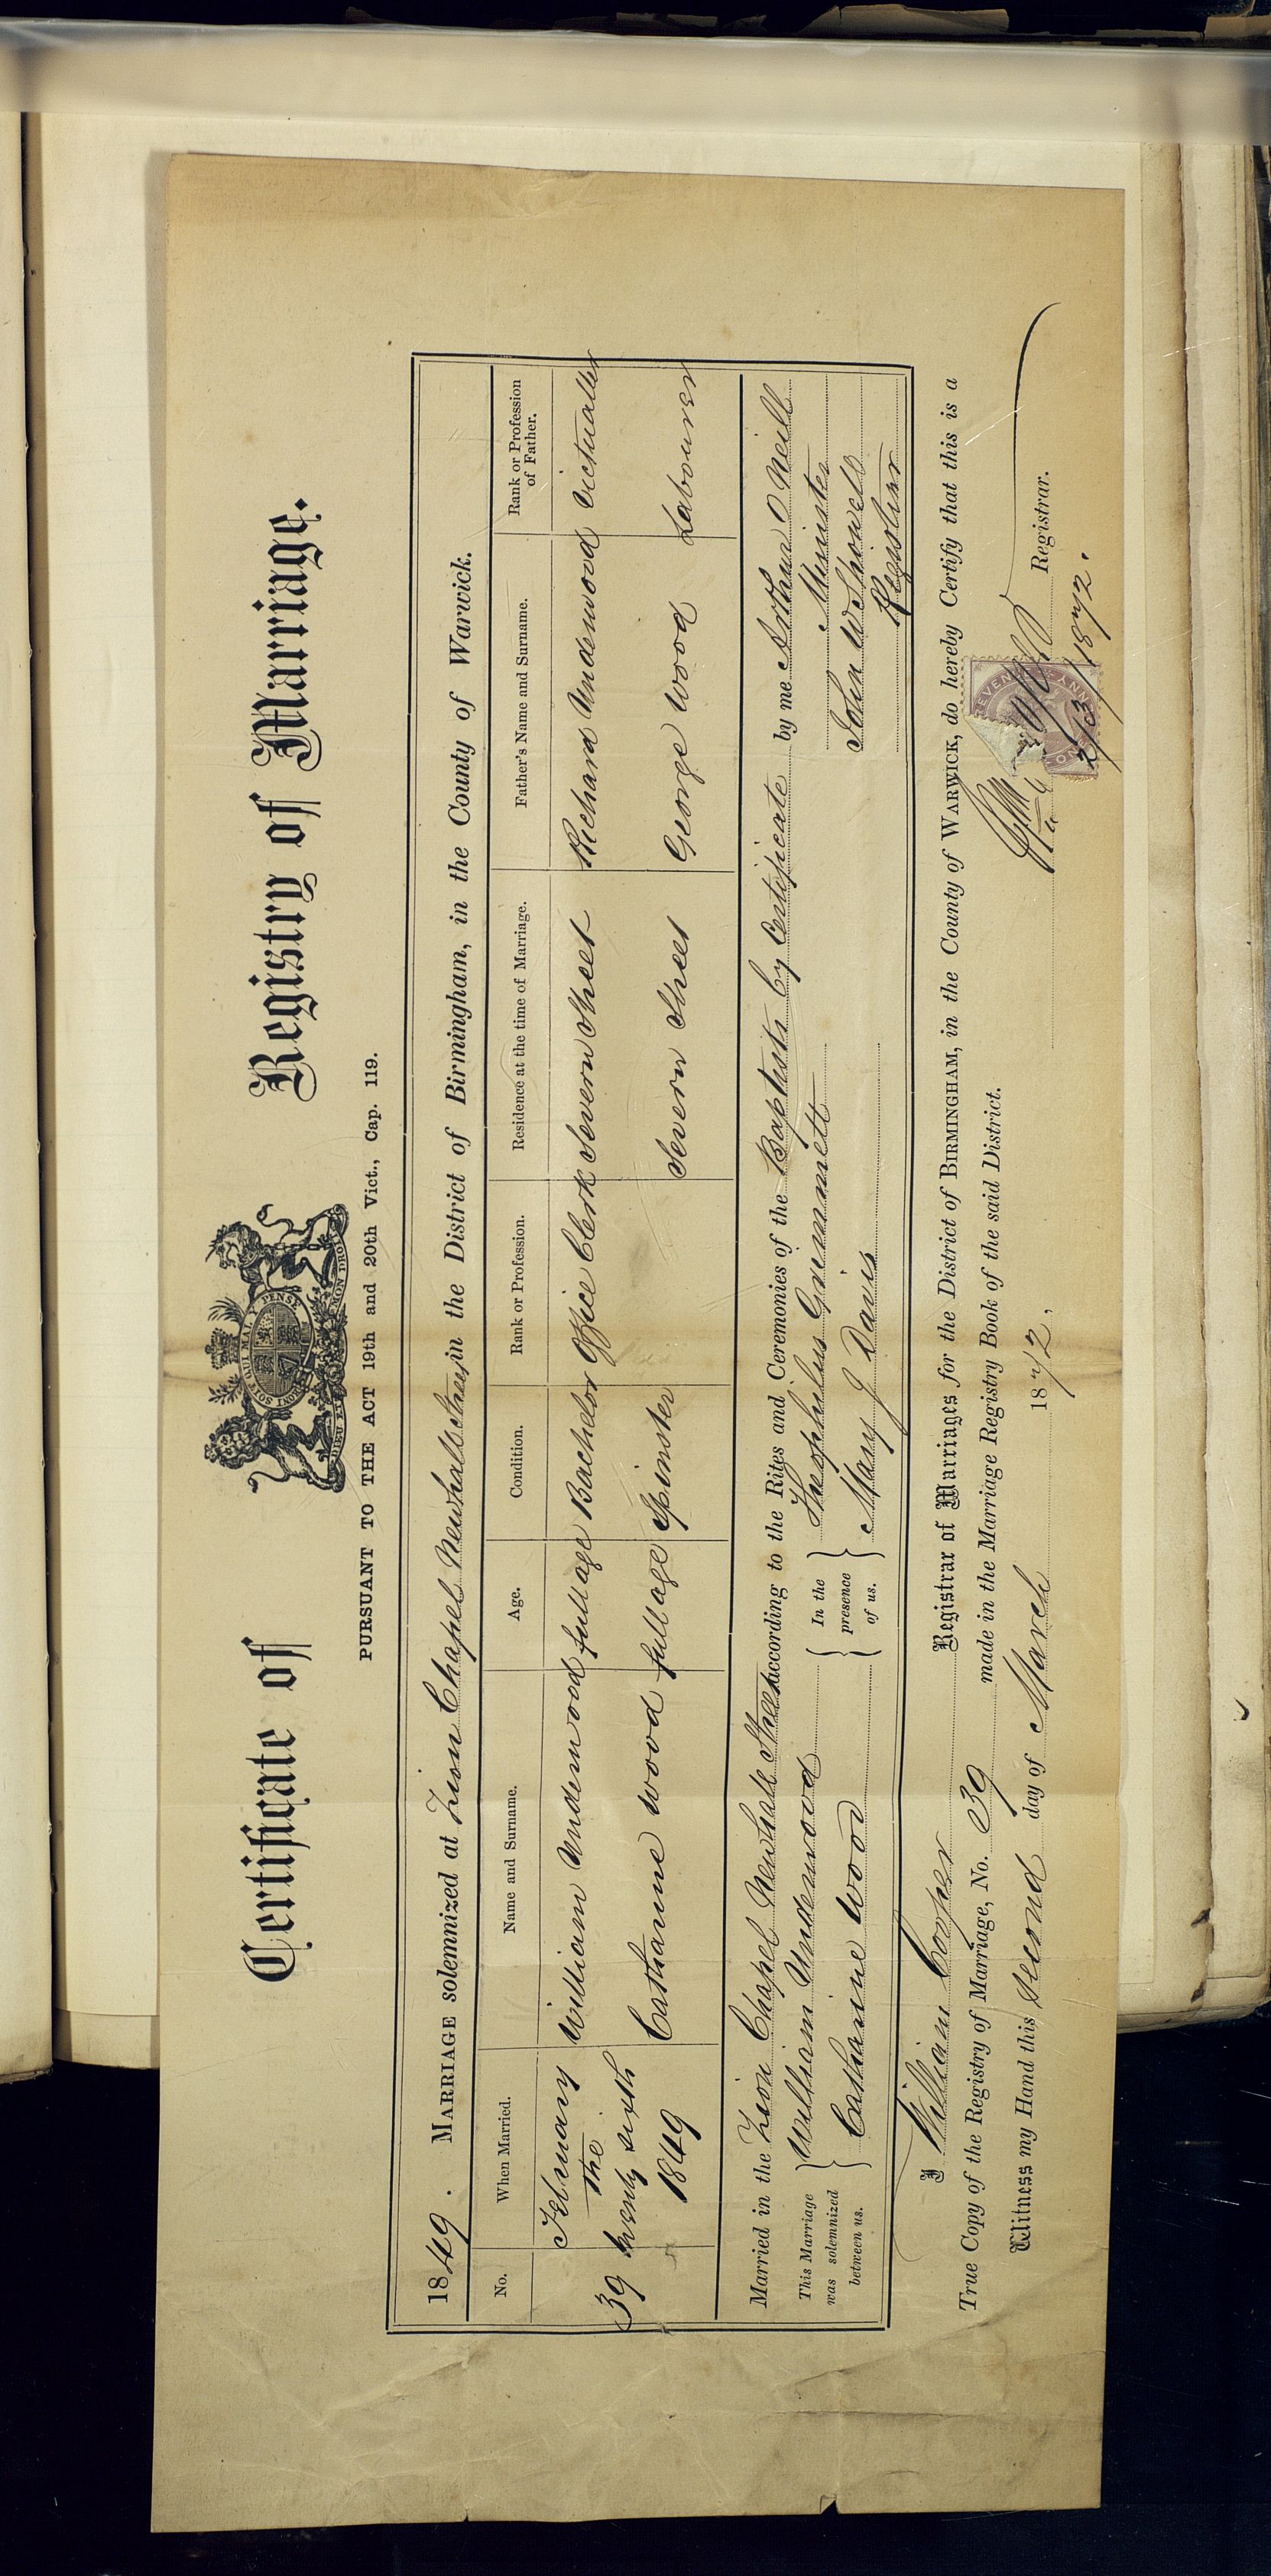 Certificate of Registry of Marriage.
HONI SOIT QUI MAL Y PENSE
DIEU ET MON DROIT
PURSUANT TO THE ACT 19th and 20th Vict., Cap. 119.
1849. MARRIAGE solemnized at Zion Chapel Newhall Street in the District of Birmingham, in the County of Warwick.
No. When Married. Name and Surname. Age. Condition. Rank or Profession. Residence at the time of Marriage. Father's Name and Surname. Rank or Profession of Father.
39 February the twenty sixth 1849
William Underwood full age Bachelor Office Clerk Severn Street Richard Underwood Victualler
Catharine Wood full age Spinster Severn Street George Wood Labourer
Married in the Zion Chapel Newhall Street according to the Rites and Ceremonies of the Baptists by Certificate by me Arthur O Neill
Minister
This Marriage was solemnized between us. William Underwood
Catharine Wood
In the presence of us. Theophilus Grimmett
Mary J Davis
John W Showell
Registrar
I William Cooper Registrar of Marriages for the District of BIRMINGHAM, in the County of WARWICK, do hereby Certify that this is a
True Copy of the Registry of Marriage, No. 39 made in the Marriage Registry Book of the said District.
Witness my Hand this Second day of March 1872, Registrar.
2/3/1872.